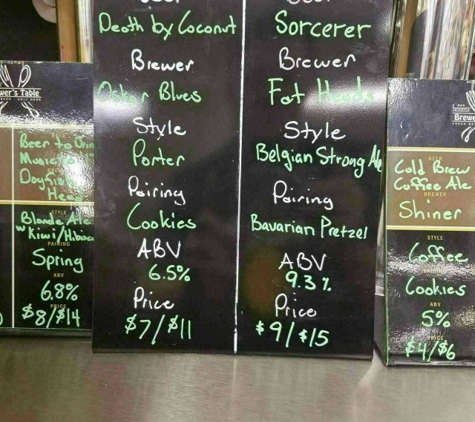 wer's Table
Beer to Drin
Music to
Dogfis
Hea
STYLE
Blonde Ale
w Kiwi/Hibiscu
PAIRING
Spring
ABV
6.8%
PRICE
$8/$14
Death by Coconut
Brewer
Oskar Blues
Style
Porter
Pairing
Cookies
ABV
6.5%
Price
$7/$11
Sorcerer
Brewer
Fat Heads
Style
Belgian Strong Ale
Pairing
Bavarian Pretzel
ABV
9.3%
Price
$9/$15
Brewe
BEER
Cold Brew
Coffee Ale
BREWER
Shiner
STYLE
Coffee
PAIRING
Cookies
ABV
5%
PRICE
$4/$6